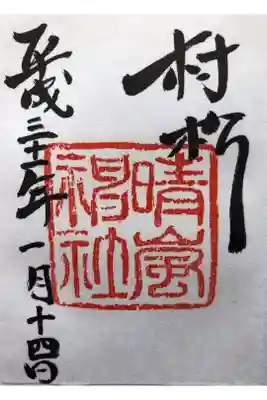 村
晴嵐
神社
平成三十一年一月十四日